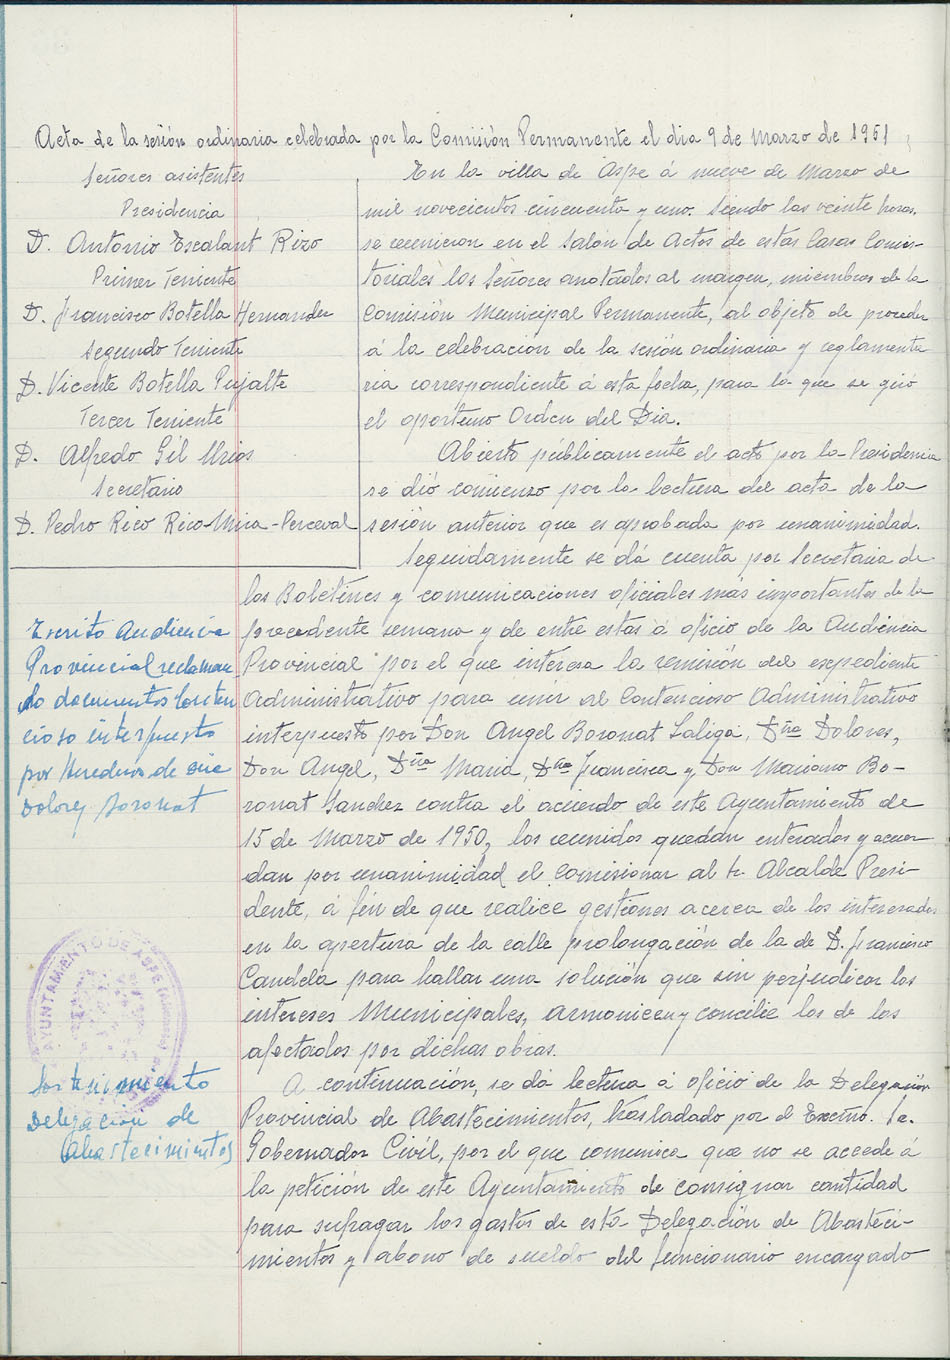 Acta de la sesión ordinaria celebrada por la Comisión Permanente el dia 9 de Marzo de 1951
Señores asistentes
Presidencia
D. Antonio Escalant Rizo
Primer Teniente
D. Francisco Botella Hernandez
Segundo Teniente
D. Vicente Botella Pujalte
Tercer Teniente
D. Alfredo Gil Mrios
Secretario
D. Pedro Rico Rico-Mira-Perceval
En la villa de Aspe á nueve de Marzo de
mil novecientos cincuenta y uno. Siendo las veinte horas,
se reunieron en el Salón de Actos de estas Casas Consis-
toriales los Señores anotados al margen, miembros de la
Comisión Municipal Permanente, al objeto de proceder
á la celebración de la sesión ordinaria y reglamenta
ria correspondiente á esta fecha, para lo que se giró
el oportuno Orden del Dia.
Abierto públicamente el acto por la Presidencia
se dió comienzo por la lectura del acta de la
sesión anterior que es aprobada por unanimidad.
Seguidamente se dá cuenta por Secretaria de
los Boletines y comunicaciones oficiales más importantes de la
precedente semana y de entre estas á oficio de la Audiencia
Provincial por el que interesa la remisión del expediente
Administrativo para unir al Contencioso Administrativo
interpuesto por Don Angel Boronat Saliga, Dña Dolores,
Don Angel, Dña Maria, Dña Francisca y Don Mariano Bo-
ronat Sanchez contra el acuerdo de este Ayuntamiento de
15 de Marzo de 1950, los reunidos quedan enterados y acuer
dan por unanimidad el comisionar al Sr. Alcalde Presi-
dente, á fin de que realice gestiones acerca de los interesados
en la apertura de la calle prolongación de la de D. Francisco
Candela para hallar una solución que sin perjudicar los
intereses Municipales, armonicen y concilie los de los
afectados por dichas obras.
A continuación, se dá lectura á oficio de la Delegación
Provincial de Abastecimientos, trasladado por el Excmo. Sr.
Gobernador Civil, por el que comunica que no se accede á
la petición de este Ayuntamiento de consignar cantidad
para sufragar los gastos de esta Delegación de Abasteci-
mientos y abono de sueldo del funcionario encargado
Escrito Audiencia
Provincial reclaman
do documentos Conten
cioso interpuesto
por Herederos de
Dolores Boronat
AYUNTAMIENTO DE ASPE
Sostenimiento
Delegación de
Abastecimientos